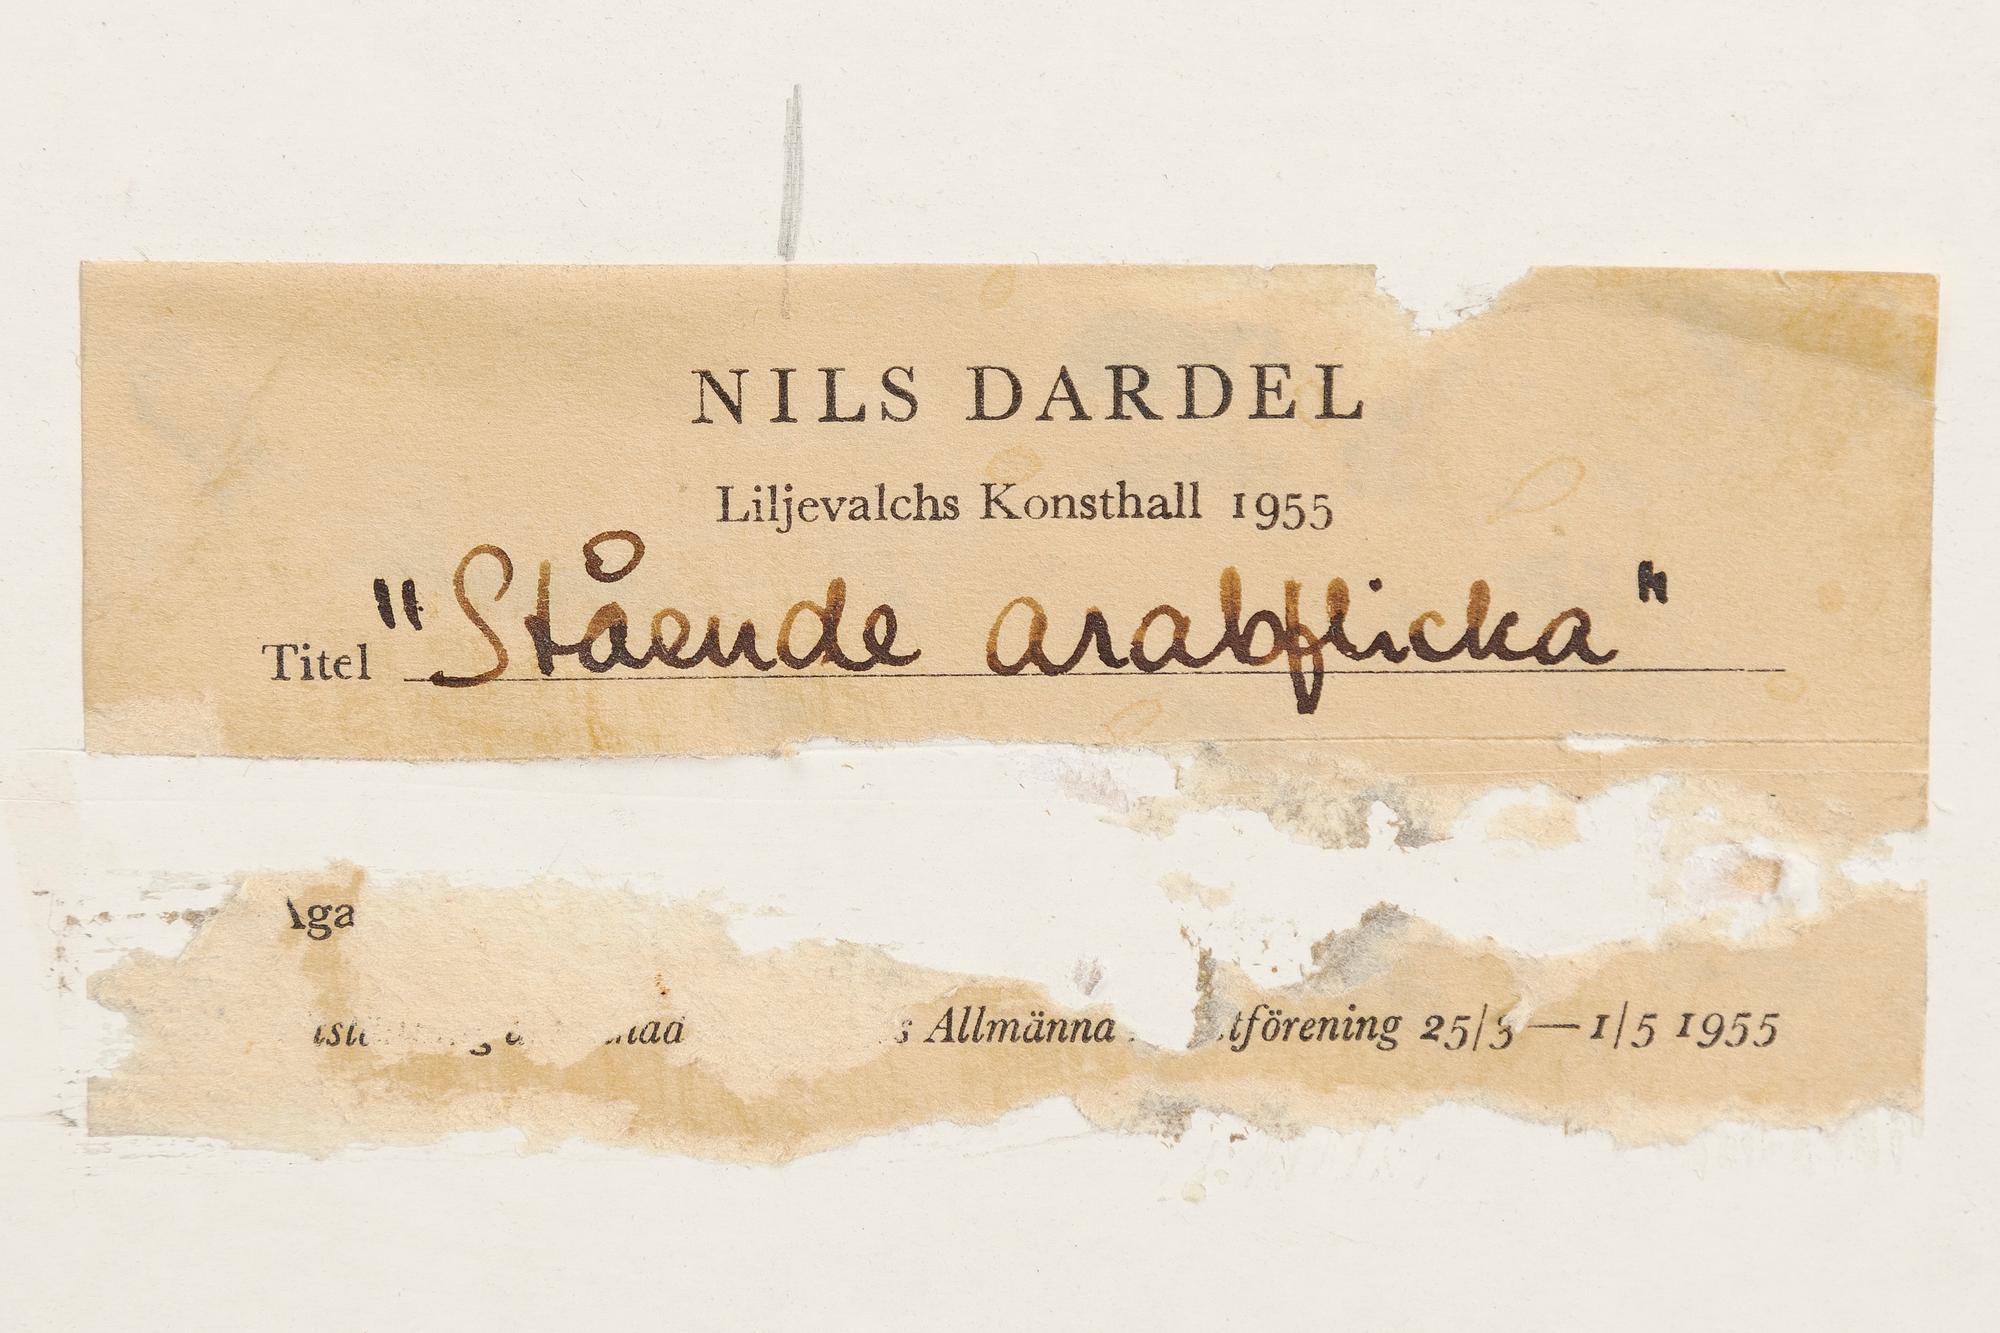 NILS DARDEL
Liljevalchs Konsthall 1955
Titel "Stående arabflicka"
Allmänna
25/3 — 1/5 1955